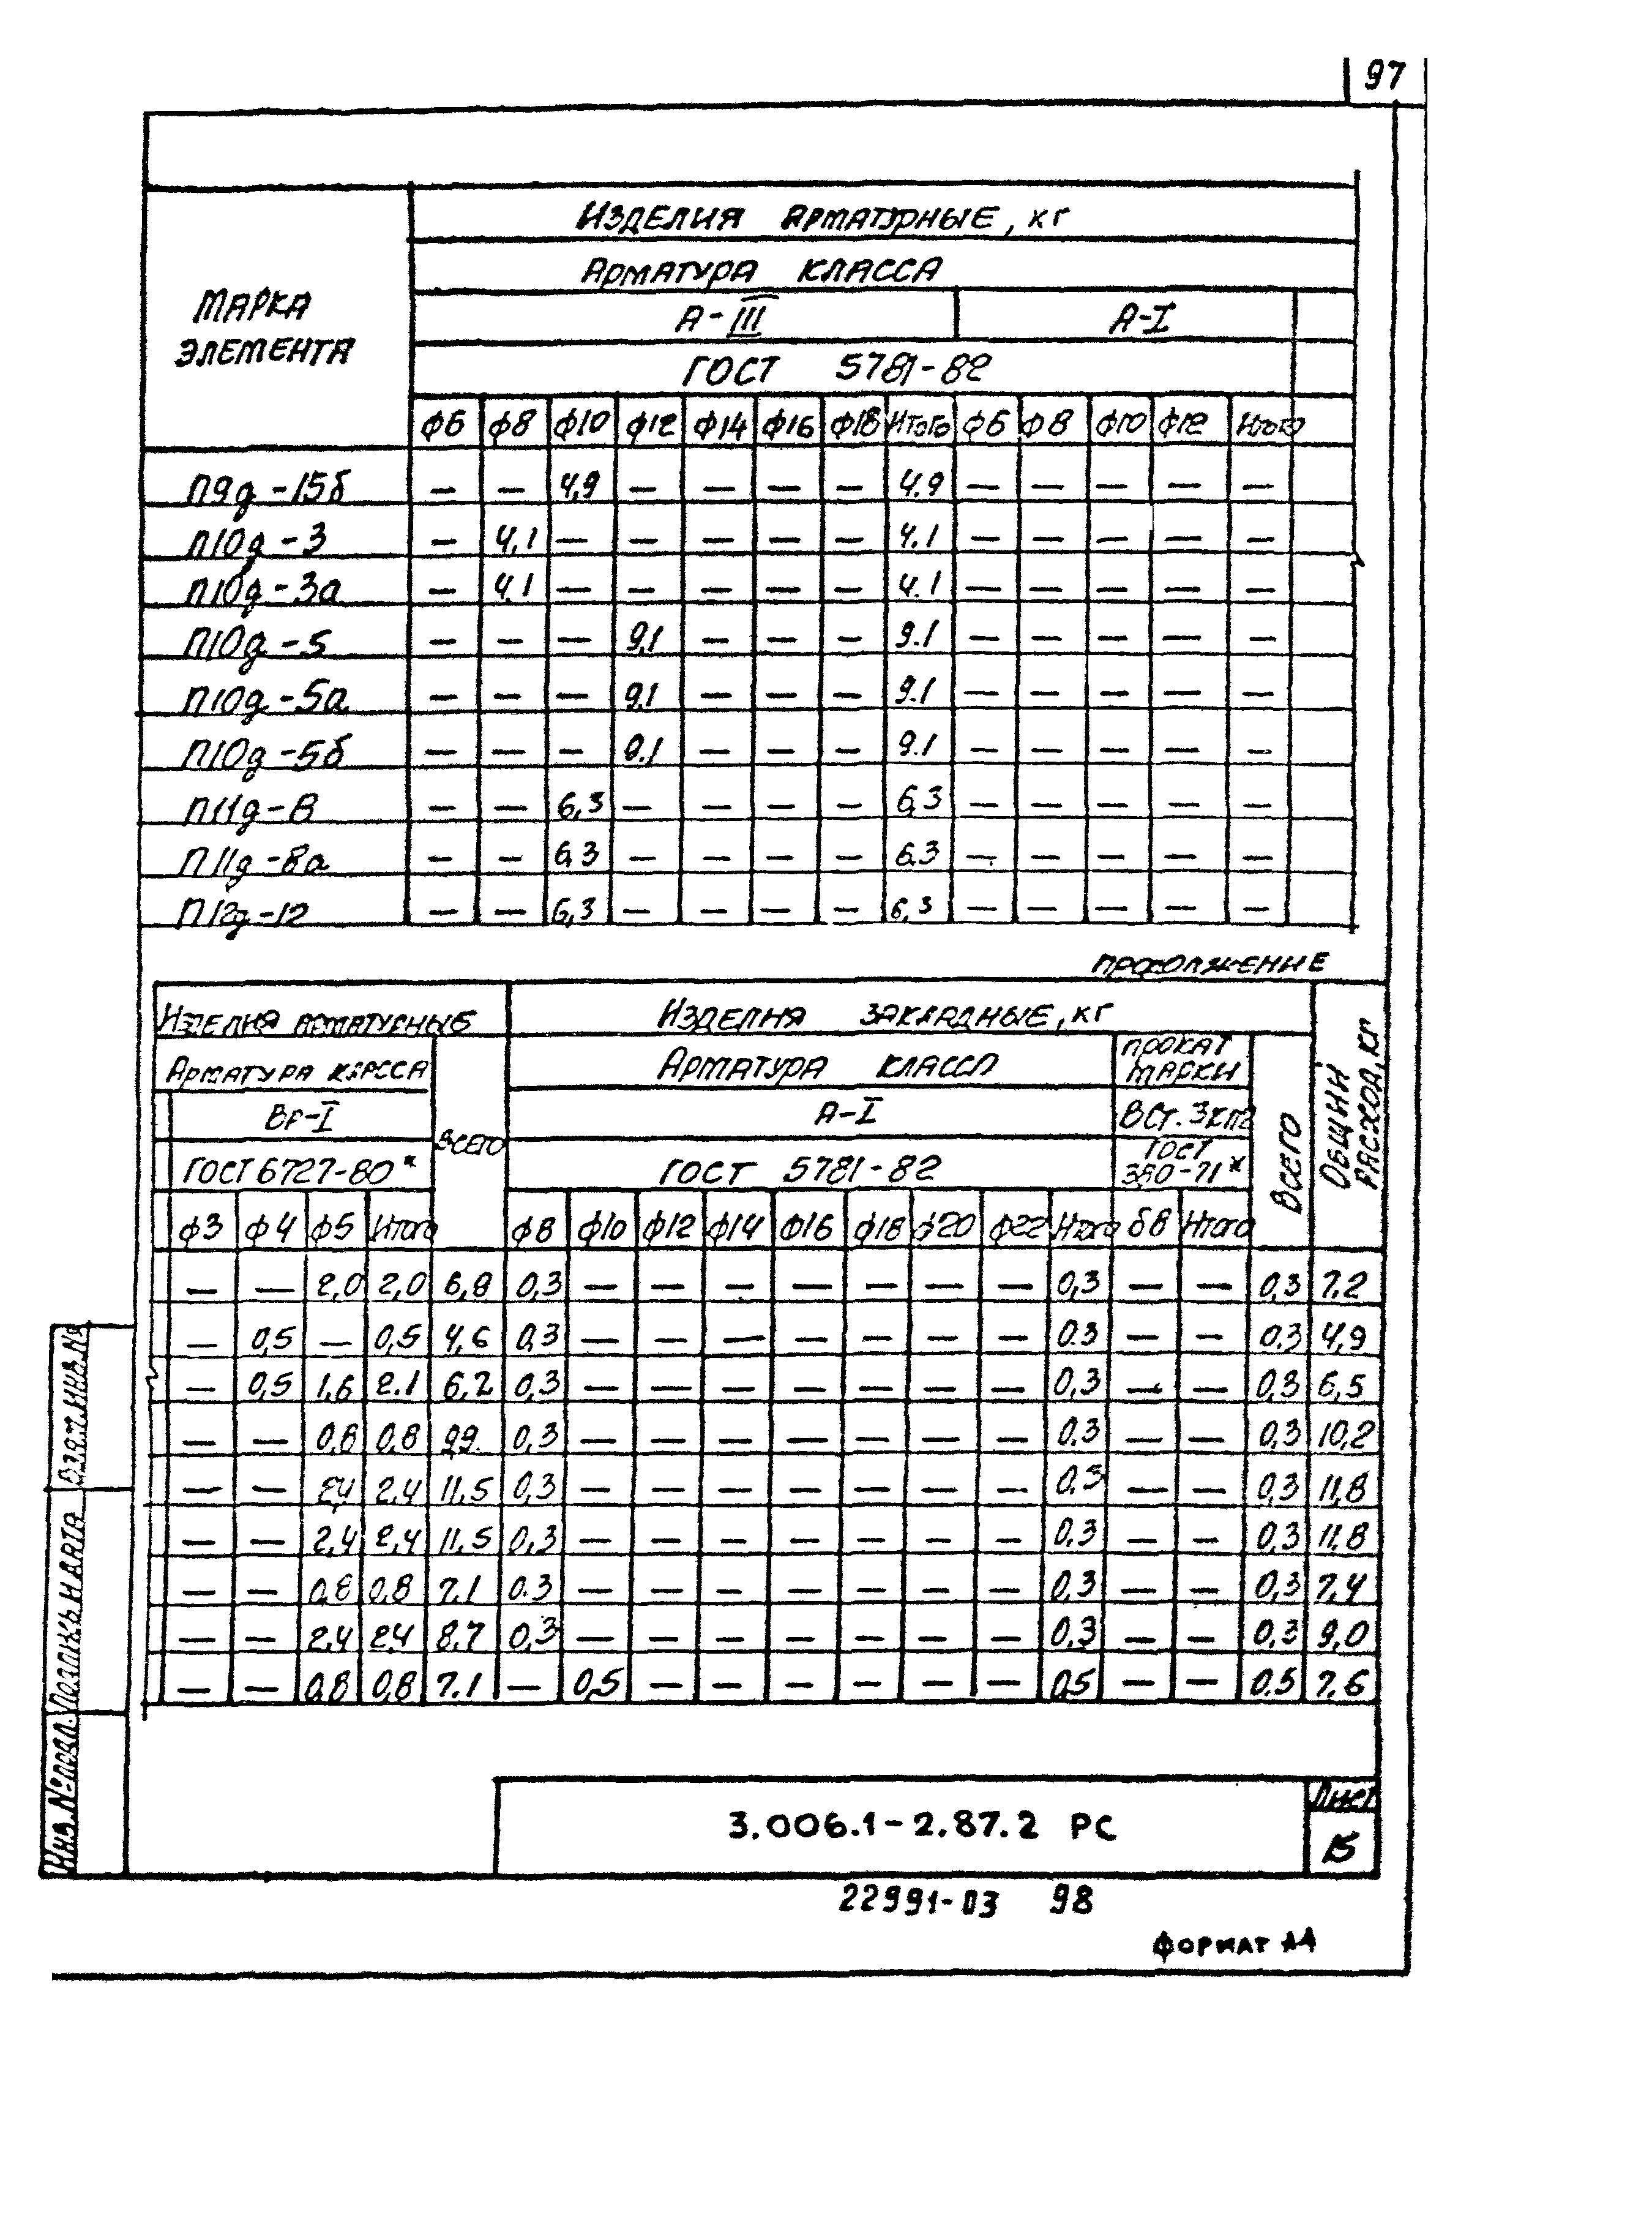 97
Изделия арматурные, кг
Арматура класса
Марка элемента
А-III А-I
ГОСТ 5781-82
Ф6 Ф8 Ф10 Ф12 Ф14 Ф16 Ф18 Итого Ф6 Ф8 Ф10 Ф12 Итого
П9д-15б — — 4,9 — — — — 4.9 — — — — —
П10д-3 — 4,1 — — — — — 4.1 — — — — —
П10д-3а — 4,1 — — — — — 4.1 — — — — —
П10д-5 — — — 9,1 — — — 9.1 — — — — —
П10д-5а — — — 9,1 — — — 9.1 — — — — —
П10д-5б — — — 9.1 — — — 9.1 — — — — —
П11д-8 — — 6,3 — — — — 6,3 — — — — —
П11д-8а — — 6,3 — — — — 6,3 — — — — —
П12д-12 — — 6,3 — — — — 6,3 — — — — —
продолжение
Изделия арматурные Изделия закладные, кг Общий расход, кг
Арматура класса Всего Арматура класса Прокат марки Всего
Вр-I А-I ВСт.3кп2
ГОСТ 6727-80* ГОСТ 5781-82 ГОСТ 380-71*
Ф3 Ф4 Ф5 Итого Ф8 Ф10 Ф12 Ф14 Ф16 Ф18 Ф20 Ф22 Итого δ8 Итого
— — 2,0 2,0 6,9 0,3 — — — — — — — 0,3 — — 0,3 7.2
— 0,5 — 0,5 4,6 0,3 — — — — — — — 0.3 — — 0,3 4,9
— 0,5 1,6 2.1 6,2 0,3 — — — — — — — 0,3 — — 0,3 6,5
— — 0,8 0,8 9,9 0,3 — — — — — — — 0.3 — — 0,3 10,2
— — 2,4 2,4 11,5 0,3 — — — — — — — 0,3 — — 0,3 11,8
— — 2,4 2,4 11,5 0,3 — — — — — — — 0,3 — — 0,3 11,8
— — 0,8 0,8 7.1 0.3 — — — — — — — 0,3 — — 0,3 7,4
— — 2,4 2,4 8,7 0,3 — — — — — — — 0,3 — — 0,3 9,0
— — 0,8 0,8 7.1 — 0,5 — — — — — — 0,5 — — 0.5 7.6
Инв. № подл. Подпись и дата Взят. инв. №
3.006.1-2.87.2 РС
Лист
15
22991-03 98
Формат А4